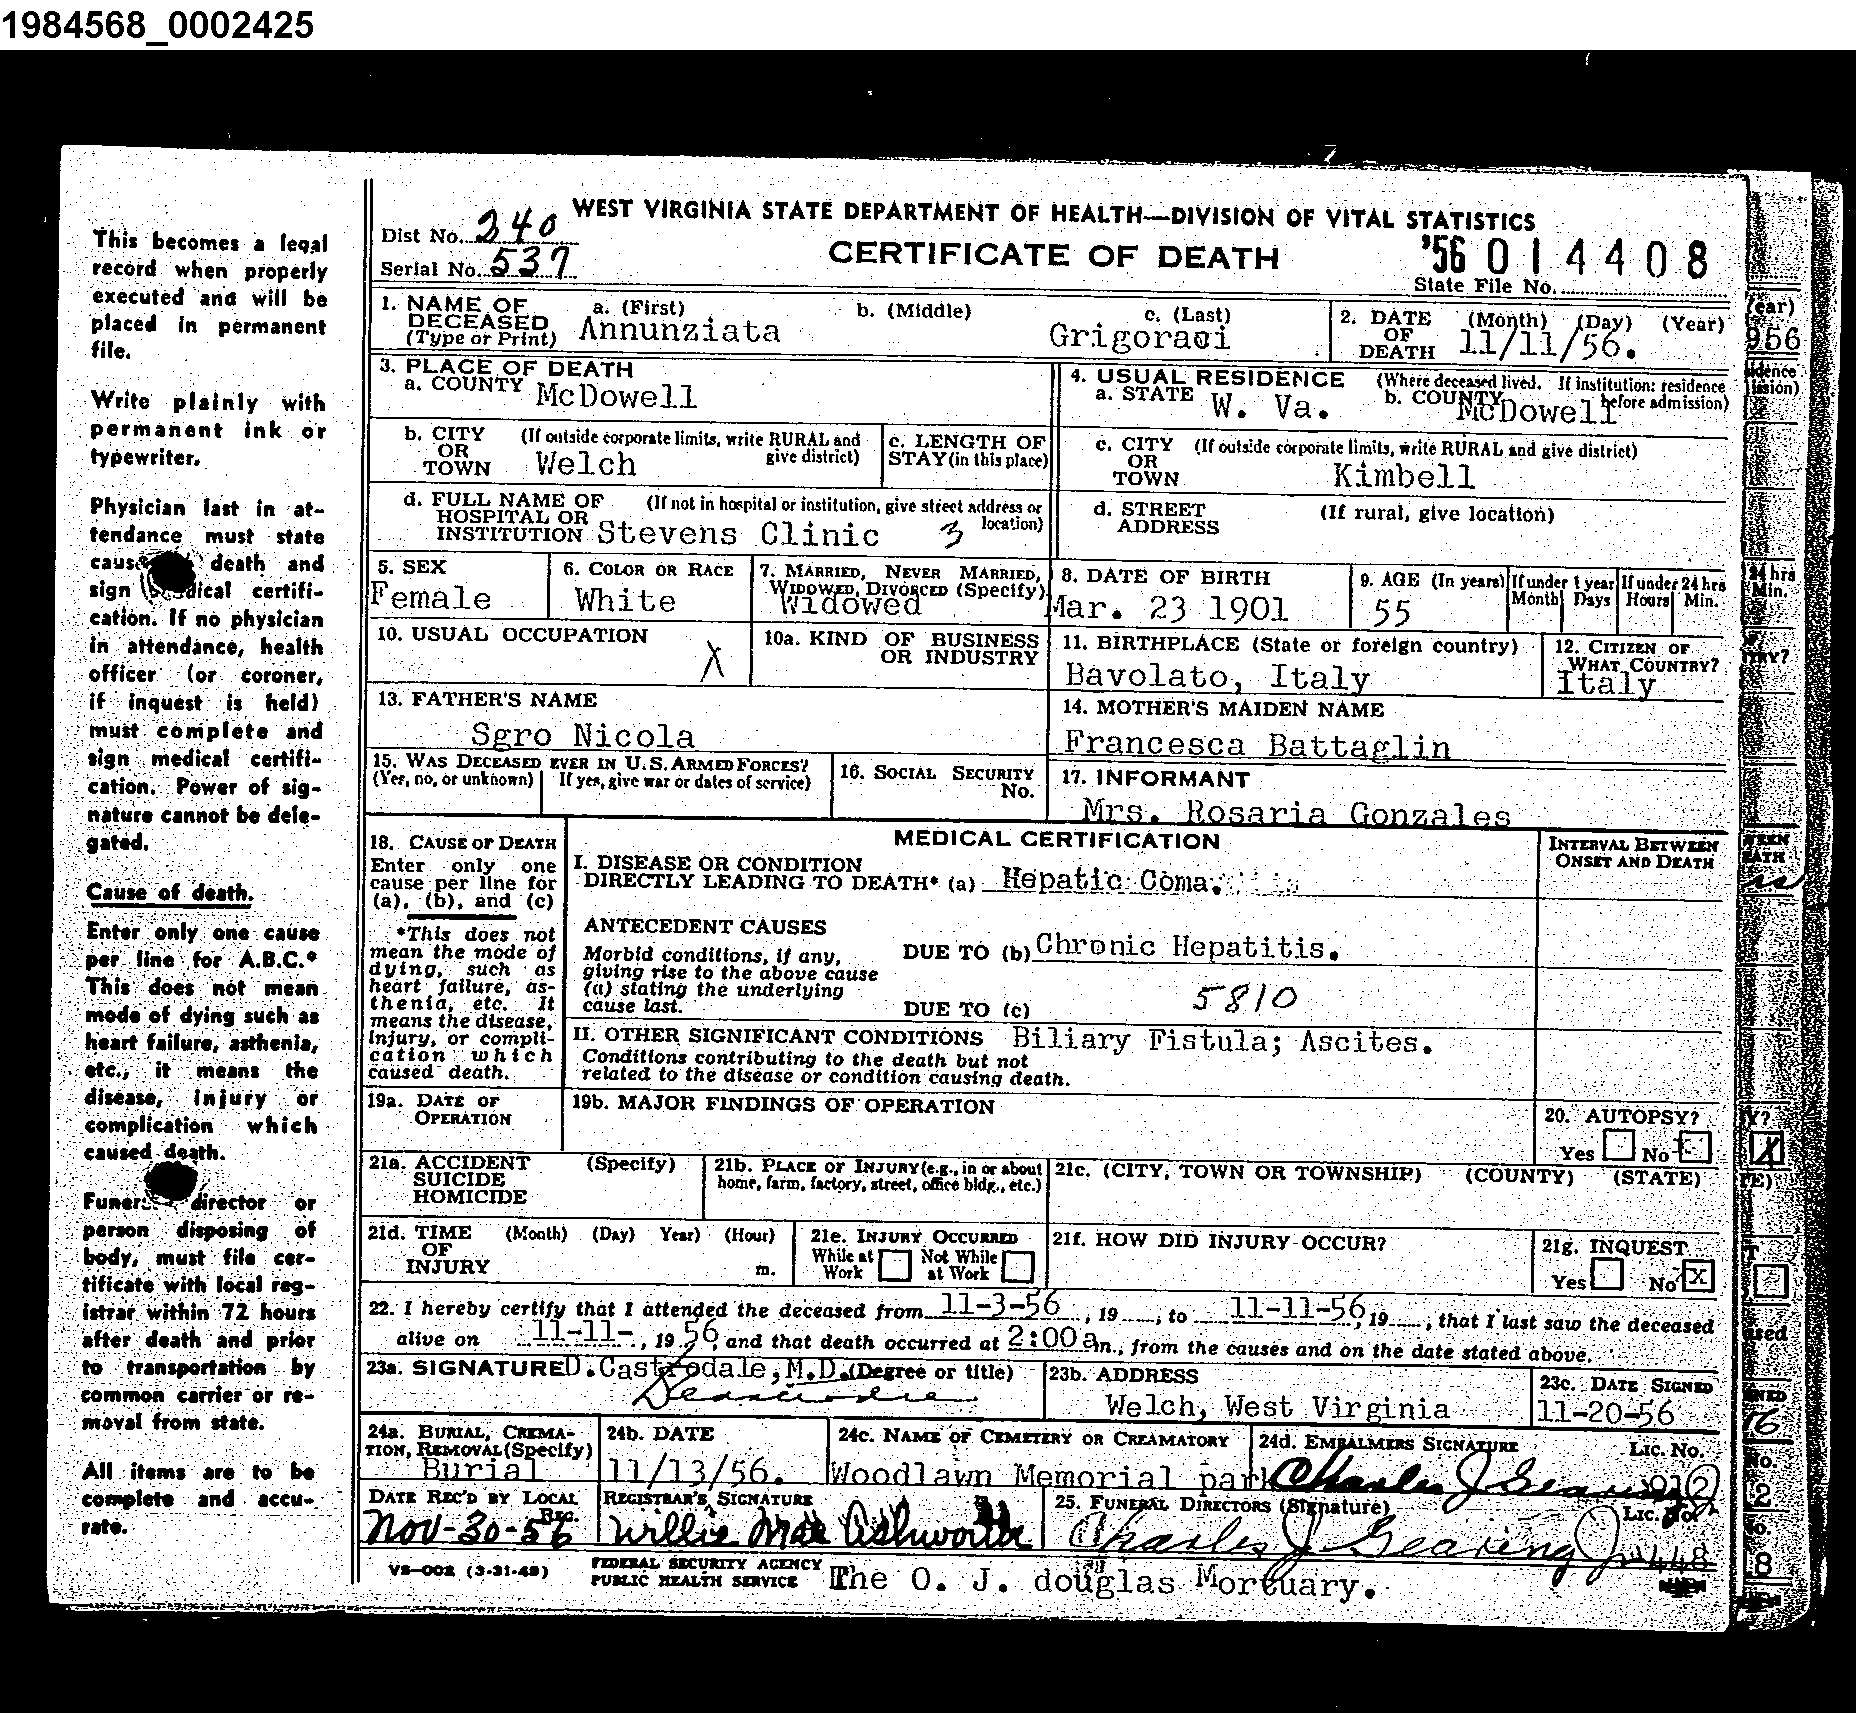 1984568_0002425
This becomes a legal
record when properly
executed and will be
placed in permanent
file.
Write plainly with
permanent ink or
typewriter.
Physician last in at-
tendance must state
cause death and
sign dical certifi-
cation. If no physician
in attendance, health
officer (or coroner,
if inquest is held)
must complete and
sign medical certifi-
cation. Power of sig-
nature cannot be dele-
gated.
Cause of death.
Enter only one cause
per line for A.B.C.*
This does not mean
mode of dying such as
heart failure, asthenia,
etc., it means the
disease, injury or
complication which
caused death.
Funer director or
person disposing of
body, must file cer-
tificate with local reg-
istrar within 72 hours
after death and prior
to transportation by
common carrier or re-
moval from state.
All items are to be
complete and accu-
rate.
WEST VIRGINIA STATE DEPARTMENT OF HEALTH—DIVISION OF VITAL STATISTICS
Dist No. 240
Serial No. 537
CERTIFICATE OF DEATH
'56 014408
State File No.
1. NAME OF DECEASED (Type or Print) a. (First) b. (Middle) c. (Last)
Annunziata Grigoraci
2. DATE OF DEATH (Month) (Day) (Year)
11/11/56.
3. PLACE OF DEATH
a. COUNTY McDowell
4. USUAL RESIDENCE (Where deceased lived. If institution: residence before admission)
a. STATE W. Va. b. COUNTY McDowell
b. CITY OR TOWN (If outside corporate limits, write RURAL and give district) Welch
c. LENGTH OF STAY (in this place)
c. CITY OR TOWN (If outside corporate limits, write RURAL and give district)
Kimbell
d. FULL NAME OF HOSPITAL OR INSTITUTION (If not in hospital or institution, give street address or location)
Stevens Clinic 3
d. STREET ADDRESS (If rural, give location)
5. SEX
Female
6. COLOR OR RACE
White
7. MARRIED, NEVER MARRIED, WIDOWED, DIVORCED (Specify)
Widowed
8. DATE OF BIRTH
Mar. 23 1901
9. AGE (In years)
55
If under 1 year Month Days
If under 24 hrs Hours Min.
10. USUAL OCCUPATION
X
10a. KIND OF BUSINESS OR INDUSTRY
11. BIRTHPLACE (State or foreign country)
Bavolato, Italy
12. CITIZEN OF WHAT COUNTRY?
Italy
13. FATHER'S NAME
Sgro Nicola
14. MOTHER'S MAIDEN NAME
Francesca Battaglin
15. WAS DECEASED EVER IN U.S. ARMED FORCES?
(Yes, no, or unknown) If yes, give war or dates of service)
16. SOCIAL SECURITY No.
17. INFORMANT
Mrs. Rosaria Gonzales
18. CAUSE OF DEATH
Enter only one
cause per line for
(a), (b), and (c)
*This does not
mean the mode of
dying, such as
heart failure, as-
thenia, etc. It
means the disease,
injury, or compli-
cation which
caused death.
MEDICAL CERTIFICATION
INTERVAL BETWEEN ONSET AND DEATH
I. DISEASE OR CONDITION
DIRECTLY LEADING TO DEATH* (a) Hepatic Coma.
ANTECEDENT CAUSES
Morbid conditions, if any,
giving rise to the above cause
(a) stating the underlying
cause last.
DUE TO (b) Chronic Hepatitis.
DUE TO (c) 5810
II. OTHER SIGNIFICANT CONDITIONS Biliary Fistula; Ascites.
Conditions contributing to the death but not
related to the disease or condition causing death.
19a. DATE OF OPERATION
19b. MAJOR FINDINGS OF OPERATION
20. AUTOPSY?
Yes No
21a. ACCIDENT SUICIDE HOMICIDE (Specify)
21b. PLACE OF INJURY (e.g., in or about home, farm, factory, street, office bldg., etc.)
21c. (CITY, TOWN OR TOWNSHIP) (COUNTY) (STATE)
21d. TIME OF INJURY (Month) (Day) Year) (Hour) m.
21e. INJURY OCCURRED
While at Work Not While at Work
21f. HOW DID INJURY OCCUR?
21g. INQUEST
Yes No X
22. I hereby certify that I attended the deceased from 11-3-56, 19, to 11-11-56, 19, that I last saw the deceased
alive on 11-11-, 19 56, and that death occurred at 2:00 a m., from the causes and on the date stated above.
23a. SIGNATURE D. Castrodale, M.D. (Degree or title)
23b. ADDRESS
Welch, West Virginia
23c. DATE SIGNED
11-20-56
24a. BURIAL, CREMA-
TION, REMOVAL (Specify)
Burial
24b. DATE
11/13/56.
24c. NAME OF CEMETERY OR CREAMATORY
Woodlawn Memorial park
24d. EMBALMERS SIGNATURE Lic. No.
Charles J Gearing
DATE REC'D BY LOCAL REG.
Nov-30-56
REGISTRAR'S SIGNATURE
Willie Mae Ashworth
25. FUNERAL DIRECTORS (Signature) Lic. No.
Charles J Gearing Jr 448
VS-002 (3-31-48)
FEDERAL SECURITY AGENCY
PUBLIC HEALTH SERVICE
The O. J. douglas Mortuary.